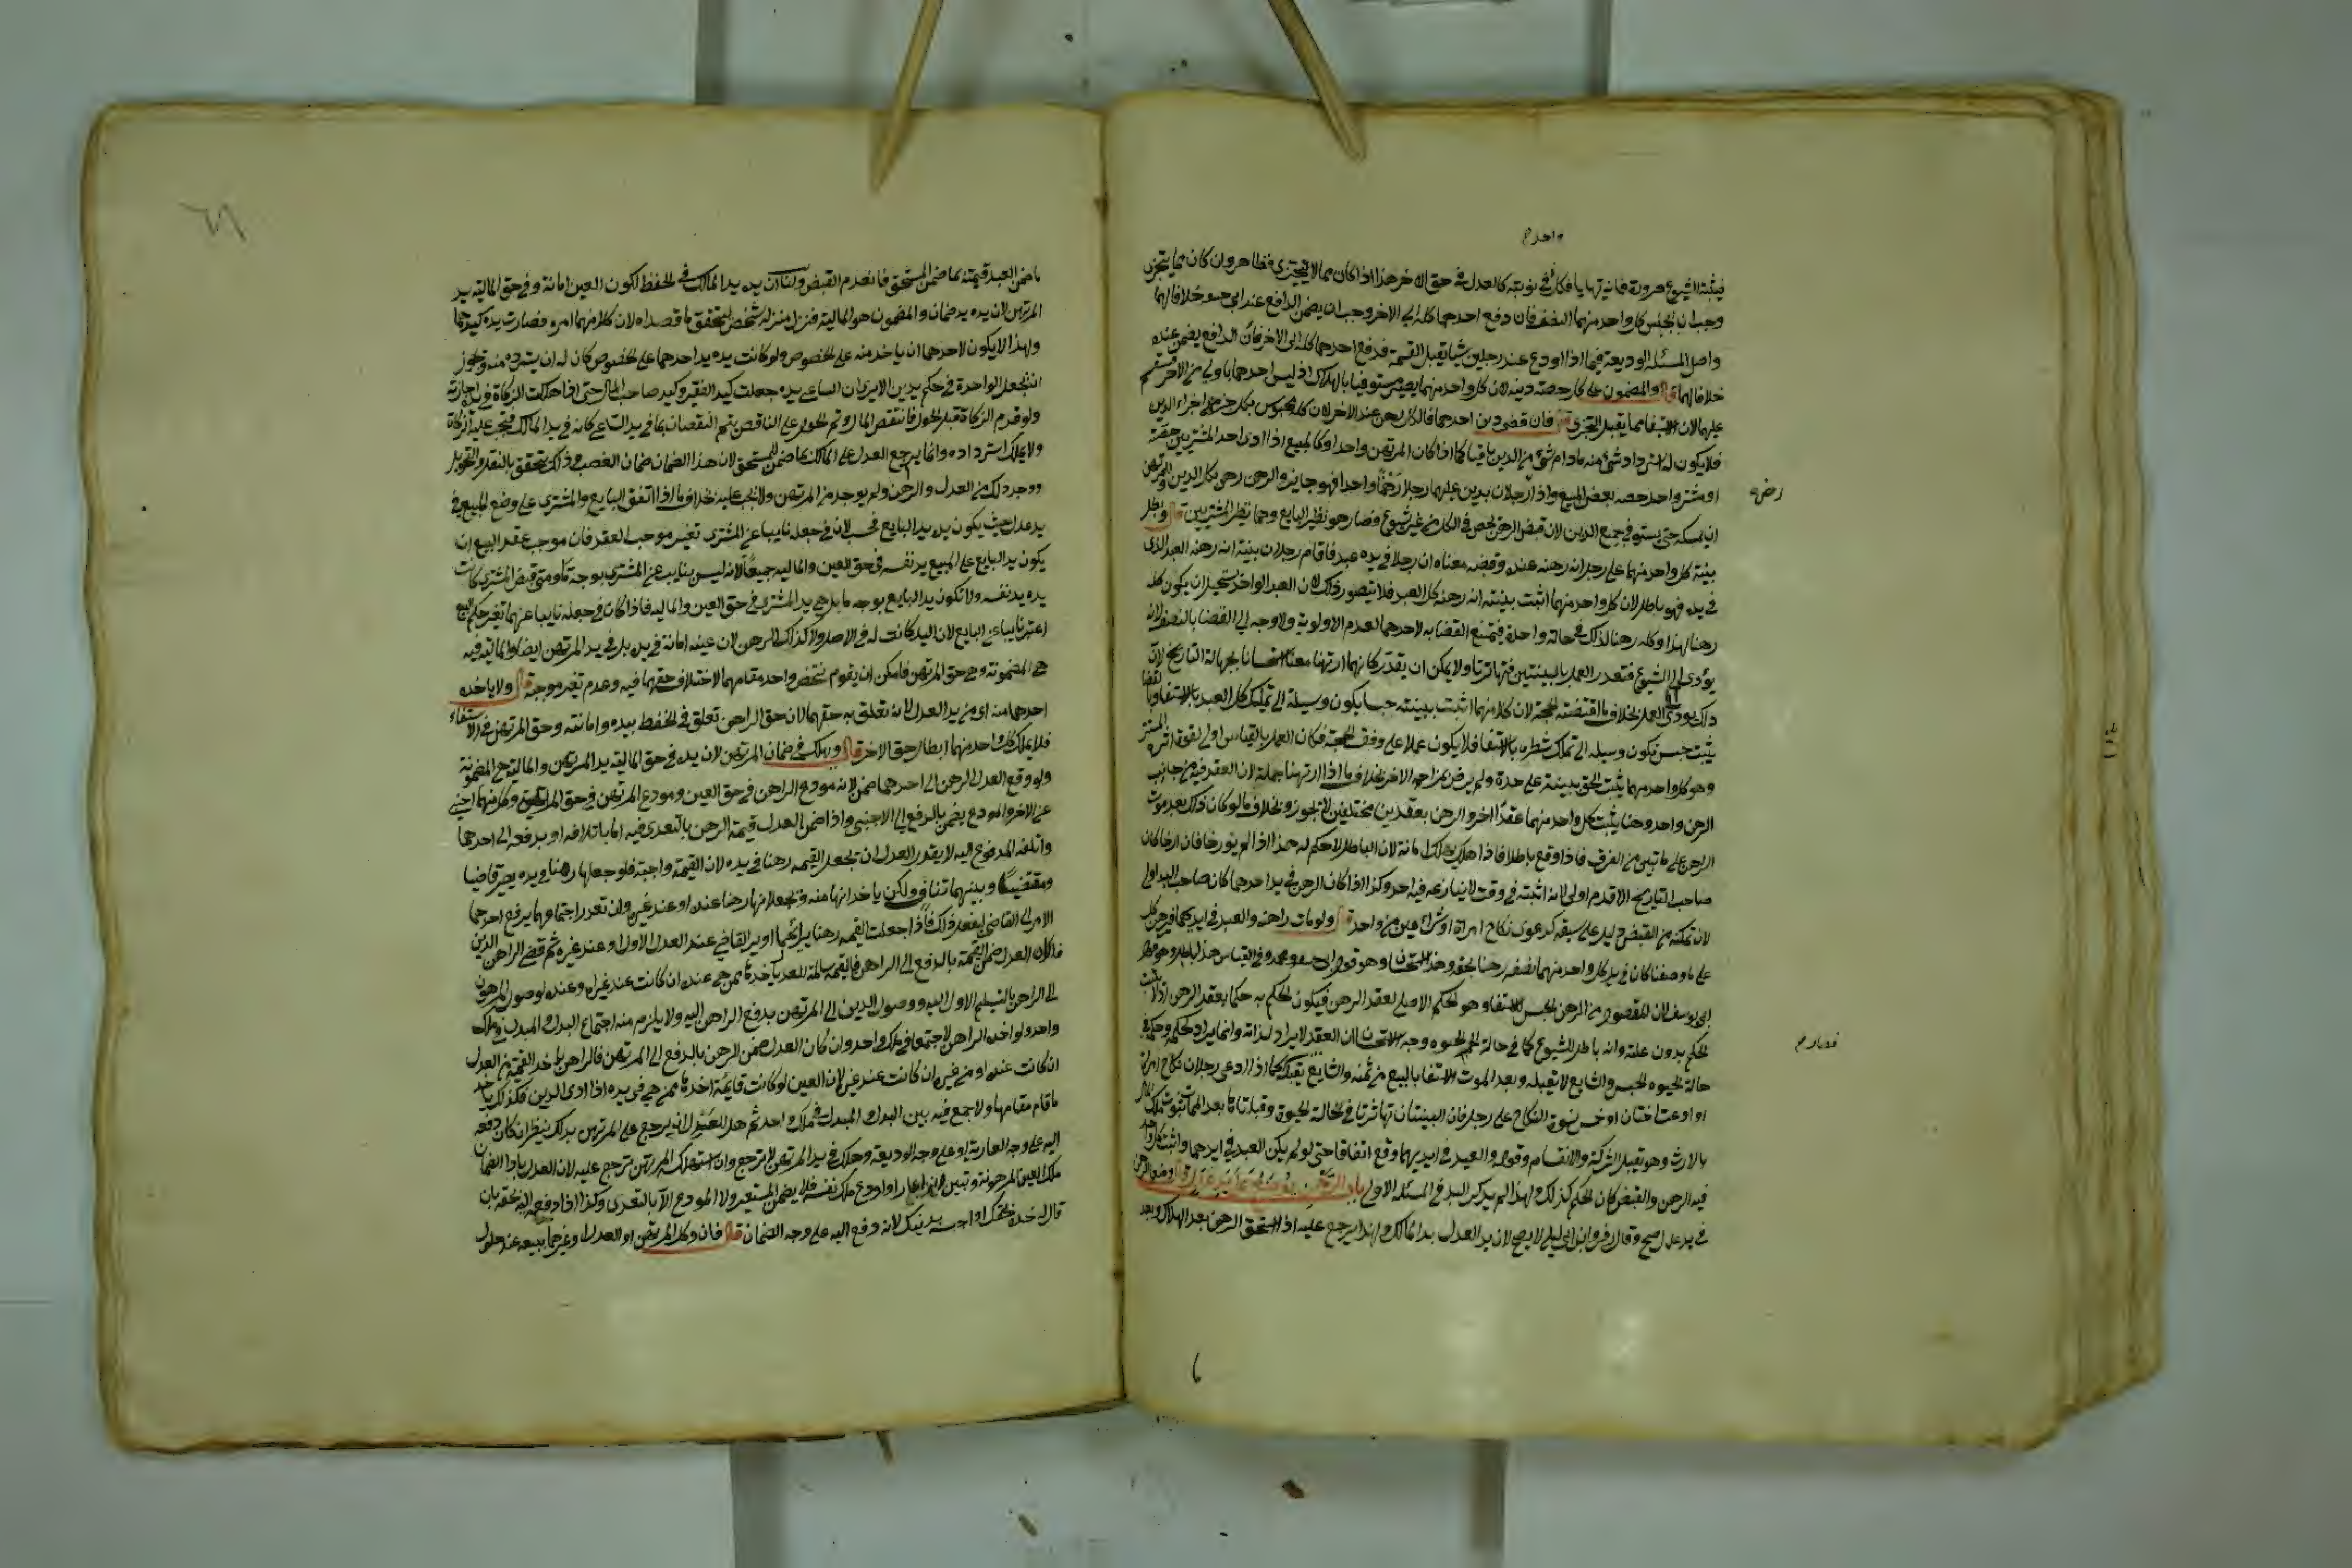 واحد
فيثبت الشيوع ضرورة فان تهايا فكل في نوبته كالعدل في حق الاخر هذا اذا كان مما لا يتجزى فظاهر وان كان مما يتجزى
وجب ان يحبس كل واحد منهما النصف فان دفع احدهما كله الى الاخر وجب ان يضمن الدافع عند ابي حنيفة خلافا لهما
واصل المسئلة الوديعة فيما اذا اودع عند رجلين شيا يقبل القسمة فدفع احدهما كله الى الاخر فان الدافع يضمن عنده
خلافا لهما قال والمضمون على كل حصة دينه لان كل واحد منهما يصير مستوفيا بالهلاك اذ ليس احدهما باولى من الاخر فيقسم
عليهما لان الاستيفاء مما يقبل التجزي قال فان قضى دين احدهما فالكل رهن عند الاخر لان كله محبوس بكل جزء من اجزاء الدين
فلا يكون له استرداد شئ منه ما دام شئ من الدين باقيا كما اذا كان المرتهن واحدا وكالمبيع اذا ادى احد المشتريين حصته
او مشتر واحد حصة بعض المبيع واذا رهن رجلان بدين عليهما رجلا رهنا واحدا فهو جايز والرهن رهن بكل الدين وللمرتهن
رهن
ان يمسكه حتى يستوفي جميع الدين لان قبض الرهن يحصل في الكل من غير شيوع فصار هو نظير البايع وهما نظير المشتريين قال وبطل
بينة كل واحد منهما على رجل انه رهنه عنده وقبضه معناه ان رجلا في يده عبد فاقام رجلان بينة انه رهنه العبد الذي
في يده فهو باطل لان كل واحد منهما اثبت ببينته انه رهنه كل العبد فلا يتصور ذلك لان العبد الواحد يستحيل ان يكون كله
رهنا لهذا وكله رهنا لذلك في حالة واحدة فيمتنع القضا به لاحدهما لعدم الاولوية ولا وجه الى القضا بالنصف لانه
يؤدي الى الشيوع فتعذر العمل بالبينتين فتهاترتا ولا يمكن ان يقدر كانهما ارتهنا معا استحسانا لجهالة التاريخ لان
ذلك يؤدي الى العمل بخلاف ما اقتضته الحجة لان كلا منهما اثبت ببينته حبسا يكون وسيلة الى تملك كل العبد بالاستيفاء وبالقضا
يثبت حبس يكون وسيلة الى تملك شطره بالاستيفا فلا يكون عملا على وفق الحجة فكان العمل بالقياس اولى لقوة اثره
وهو كل واحد منهما يثبت الحق ببينته على حدة ولم يرض بمزاحمة الاخر بخلاف ما اذا ارتهنا جملة لان العقد فيه من جانب
الرهن واحد وهنا يثبت كل واحد منهما عقدا اخر والرهن بعقدين مختلفين لا يجوز وبخلاف ما لو كان ذلك بعد موت
الراهن على ما تبين من الفرق فاذا وقع باطلا فاذا هلك يهلك امانة لان الباطل لا حكم له هذا اذا لم يؤرخا فان ارخا كان
صاحب التاريخ الاقدم اولى لانه اثبته في وقت لا ينازعه فيه احد وكذا اذا كان الرهن في يد احدهما كان صاحب اليد اولى
لان تمكنه من القبض دليل على سبقه كدعوى نكاح امراة او شراء عين من واحد قال ولو مات راهنه والعبد في ايديهما فبرهن كل
على ما وصفنا كان في يد كل واحد منهما نصفه رهنا بحقه وهذا استحسان وهو قول ابي حنيفة ومحمد وفي القياس هذا باطل وهو قول
ابي يوسف لان المقصود من الرهن الحبس للاستيفا وهو الحكم الاصلي لعقد الرهن فيكون الحكم به حكما بعقد الرهن اذ لا يثبت
الحكم بدون علته وانه باطل للشيوع كما في حالة الحيوه وجه الاستحسان ان العقد لا يراد لذاته وانما يراد لحكمه وحكمه في
حالة الحيوه الحبس والشايع لا يقبله وبعد الموت الاستيفا بالبيع من ثمنه والشايع يقبله كما اذا ادعى رجلان نكاح امراة
فصار
او ادعت اختان او خمس نسوة النكاح على رجل فان البينتان تهاترتا في حالة الحيوة وقبلتا بعد الممات لثبوت ملك المال
بالارث وهو يقبل الشركة والانقسام وقوله والعبد في ايديهما وقع اتفاقا حتى لو لم يكن العبد في ايديهما واثبت كل واحد
فيه الرهن والقبض كان الحكم كذلك ولهذا لم يذكر اليد في المسئلة الاولى باب الرهن يوضع على يد عدل قال وضع الرهن
في يد عدل صح وقال زفر وابن ابي ليلى لا يصح لان يد العدل يد المالك ولهذا يرجع عليه اذا استحق الرهن بعد الهلاك وبعد
ما ضمن العبد قيمته بما ضمن المستحق فانعدم القبض ولنا ان يده يد المالك في الحفظ لكون العين امانة وفي حق المالية يد
المرتهن لان يده يد ضمان والمضمون هو المالية فنزل منزلة شخصين تحقيقا لما قصداه لان كلا منهما امره فصارت يده كيدهما
ولهذا لا يكون لاحدهما ان ياخذ منه على الخصوص ولو كانت يده يد احدهما على الخصوص كان له ان يسترده منه ويجوز
ان تجعل الواحدة في حكم يدين الا يرى ان الساعي يده جعلت كيد الفقير وكيد صاحب المال حتى اذا هلكت الزكاة في يده اجزته
ولو قدم الزكاة قبل الحول فانتقص المال وتم الحول على الناقص يتم النقصان بما في يد الساعي كانه في يد المالك فتجب عليه الزكاة
ولا يملك استرداده وانما يرجع العدل على المالك بما ضمن للمستحق لان هذا الضمان ضمان الغصب وذلك يتحقق بالنقل والتحويل
ووجد ذلك من العدل والراهن ولم يوجد من المرتهن ولا يجب عليه بخلاف ما اذا اتفق البايع والمشتري على وضع المبيع في
يد عدل حيث يكون يده يد البايع فحسب لان في جعله نايبا عن المشتري تغيير موجب العقد فان موجب عقد البيع ان
يكون يد البايع على المبيع يد نفسه في حق العين والمالية جميعا لانه ليس بنايب عن المشتري بوجه ما ومتى قبض المشتري كانت
يده يد نفسه ولا تكون يد البايع بوجه ما بل هي يد المشتري في حق العين والمالية فاذا كان في جعله نايبا عنهما تغيير حكم البيع
اعتبر نايبا عن البايع لان اليد كانت له في الاصل ولا كذلك الرهن لان عينه امانة في يده بل في يد المرتهن ايضا والمالية فيه
هي المضمونة وهي حق المرتهن فامكن ان يقوم شخص واحد مقامهما لاختلاف حقهما فيه وعدم تغير موجبه قال ولا ياخذه
احدهما منه اي من يد العدل لانه تعلق به حقهما لان حق الراهن تعلق في الحفظ بيده وامانته وحق المرتهن في الاستيفاء
فلا يملك كل واحد منهما ابطال حق الاخر قال ويهلك في ضمان المرتهن لان يده في حق المالية يد المرتهن والمالية هي المضمونة
ولو دفع العدل الرهن الى احدهما ضمن لانه مودع الراهن في حق العين ومودع المرتهن في حق المالية وكل منهما اجنبي
عن الاخر والمودع يضمن بالدفع الى الاجنبي واذا ضمن العدل قيمة الرهن بالتعدي فيه اما باتلافه او بدفعه الى احدهما
واتلفه المدفوع اليه لا يقدر العدل ان يجعل القيمة رهنا في يده لان القيمة واجبة فلو جعلها رهنا في يده يصير قاضيا
ومقتضيا وبينهما تناف ولكن ياخذانها منه ويجعلانها رهنا عنده او عند غيره وان تعذر اجتماعهما يرفع احدهما
الامر الى القاضي ليفعل ذلك فاذا جعلت القيمة رهنا برايهما او براي القاضي عند العدل الاول او عند غيره ثم قضى الراهن الدين
فان كان العدل ضمن القيمة بالدفع الى الراهن فالقيمة سالمة للعدل ياخذها ممن هي عنده ان كانت عند غيره او عنده لوصول المرهون
الى الراهن بالتسليم الاول اليه ووصول الدين الى المرتهن بدفع الراهن اليه ولا يلزم منه اجتماع البدل والمبدل في ملك
واحد ولو اخذه الراهن لاجتمعا في ملك واحد وان كان العدل ضمن الرهن بالدفع الى المرتهن فالراهن ياخذ القيمة من العدل
ان كانت عنده او من غيره ان كانت عند غيره لان العين لو كانت قايمة اخذها ممن هي في يده اذا ادى الدين فكذلك ياخذ
ما قام مقامها ولا جمع فيه بين البدل والمبدل في ملك واحد ثم هل للعدل ان يرجع على المرتهن بذلك ينظر ان كان دفعه
اليه على وجه العارية او على وجه الوديعة وهلك في يد المرتهن لا يرجع وان استهلك المرتهن يرجع عليه لان العدل بادا الضمان
ملك العين المرهونة وتبين انه اعار او اودع ملك نفسه فلا يضمن المستعير ولا المودع الا بالتعدي وكذا اذا دفعه اليه بحقه بان
قال له خذه بحقك او احبسه بدينك لانه دفع اليه على وجه الضمان قال فان وكل المرتهن او العدل او غيرهما ببيعه عند حلول